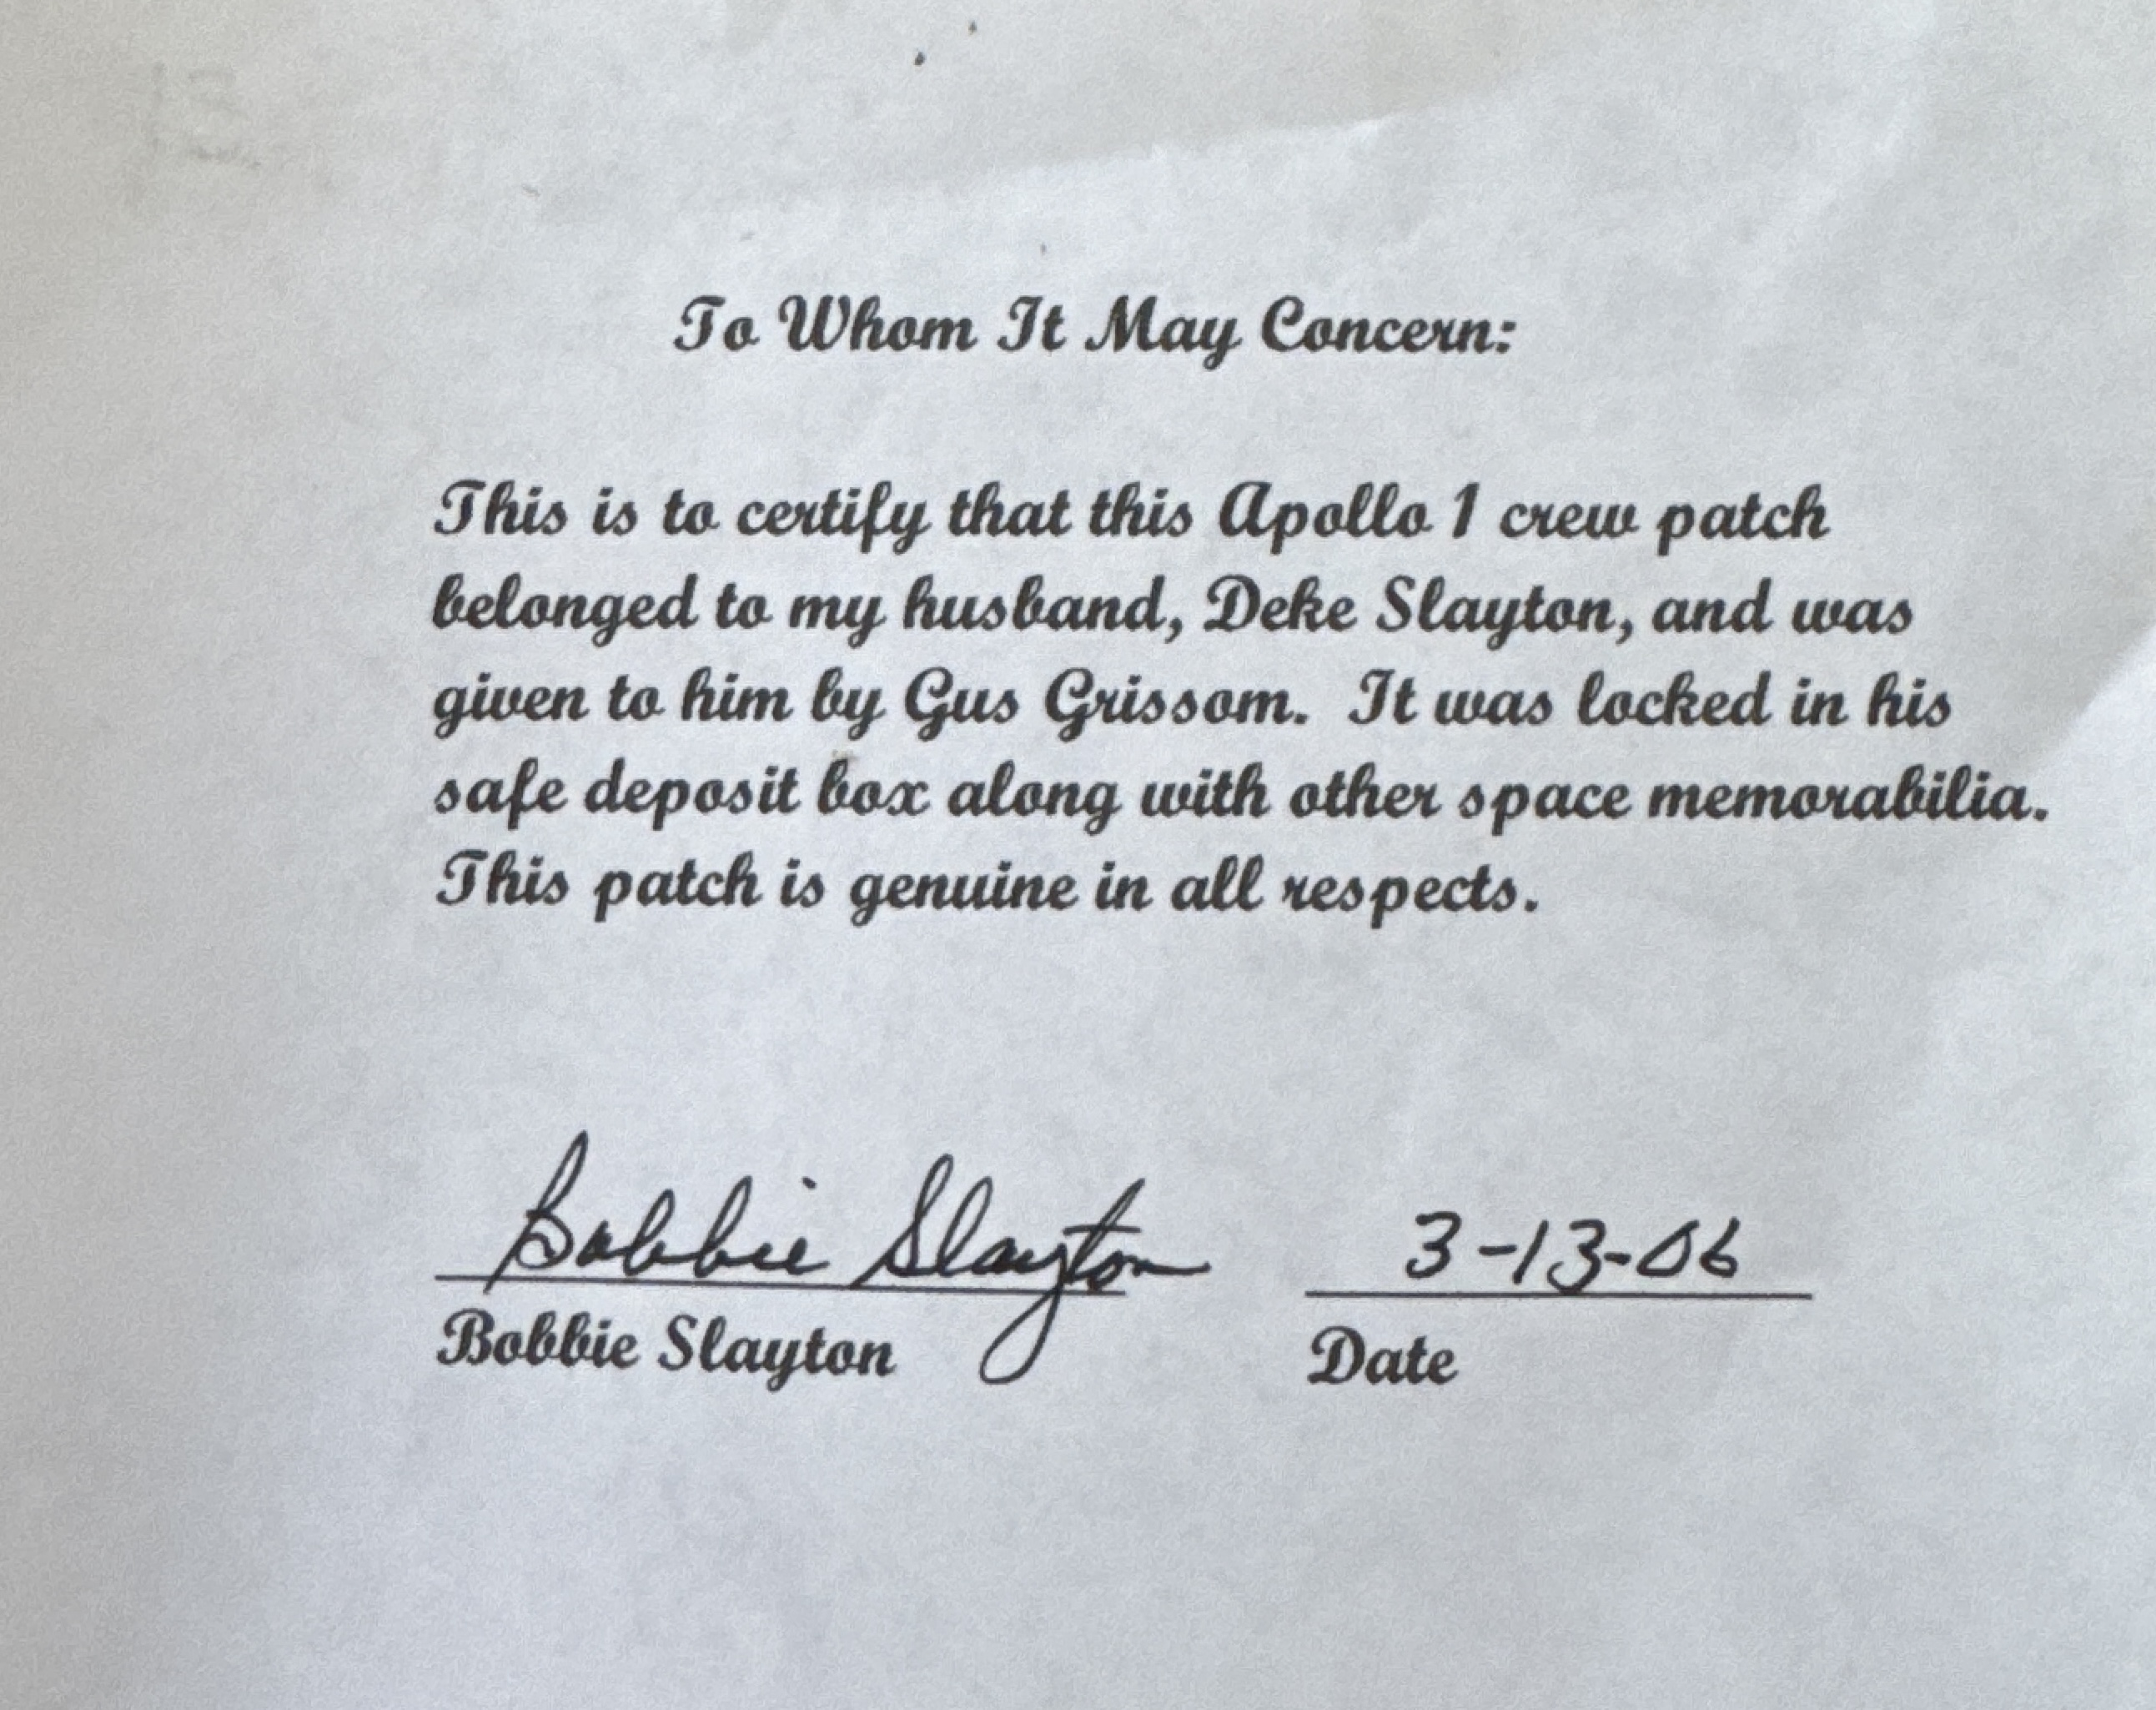 To Whom It May Concern:
This is to certify that this Apollo 1 crew patch
belonged to my husband, Deke Slayton, and was
given to him by Gus Grissom. It was locked in his
safe deposit box along with other space memorabilia.
This patch is genuine in all respects.
Bobbie Slayton 3-13-06
Bobbie Slayton Date